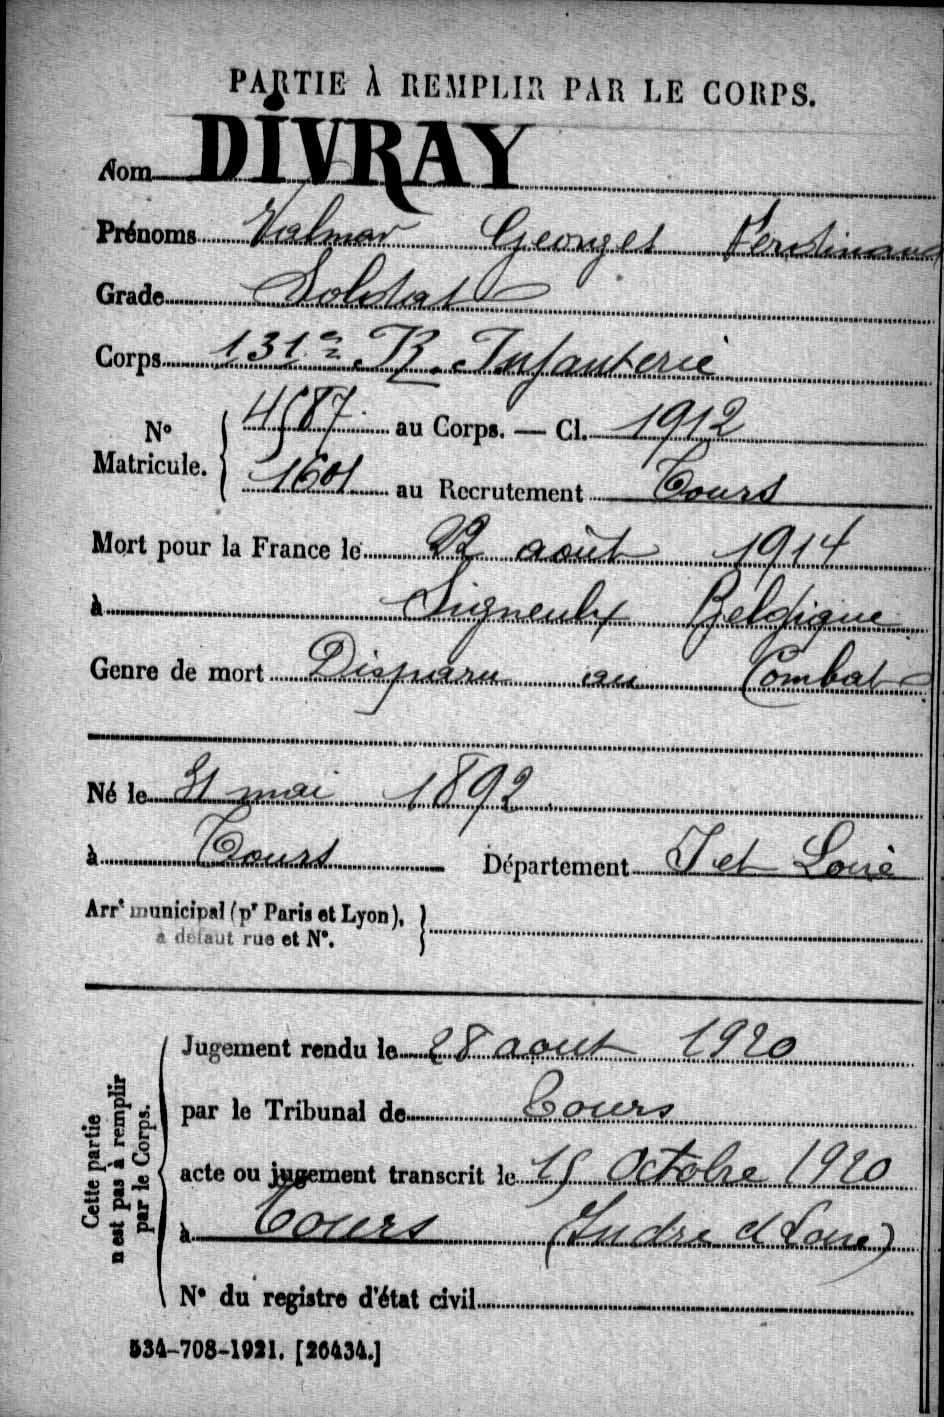 PARTIE À REMPLIR PAR LE CORPS.
Nom DIVRAY
Prénoms Valmar Georges Ferdinand
Grade Soldat
Corps 131e R. Infanterie
N° Matricule. { 4587 au Corps. — Cl. 1912
1601 au Recrutement Tours
Mort pour la France le 22 août 1914
à Signeulx Belgique
Genre de mort Disparu au Combat
Né le 31 mai 1892
à Tours Département I et Loire
Arrt municipal (pr Paris et Lyon), }
à défaut rue et N°.
Cette partie n'est pas à remplir par le Corps.
Jugement rendu le 28 aout 1920
par le Tribunal de Tours
acte ou jugement transcrit le 15 Octobre 1920
à Tours (Indre et Loire)
N° du registre d'état civil
534-708-1921. [26434.]